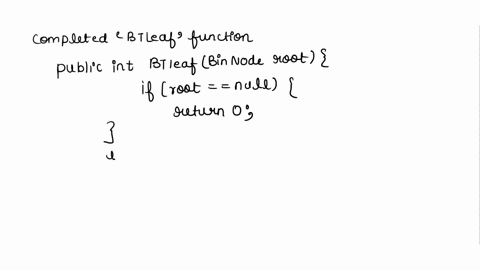 completed 'BTLeaf' function
public int BTleaf(BinNode root) {
if (root == null) {
return 0;
}